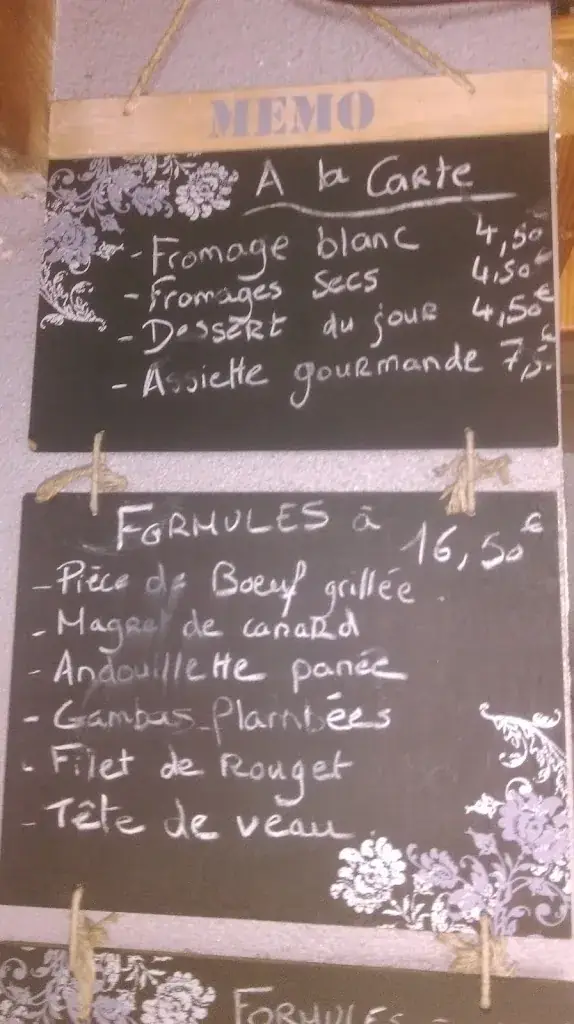 MEMO
A la Carte
- Fromage blanc 4,50
- Fromages Secs 4,50€
- Dessert du jour 4,50€
- Assiette gourmande 7,5
FORMULES à 16,50€
- Pièce de Boeuf grillée.
- Magret de canard
- Andouillette panée
- Gambas flambées
- Filet de Rouget
- Tête de veau.
FORMULES